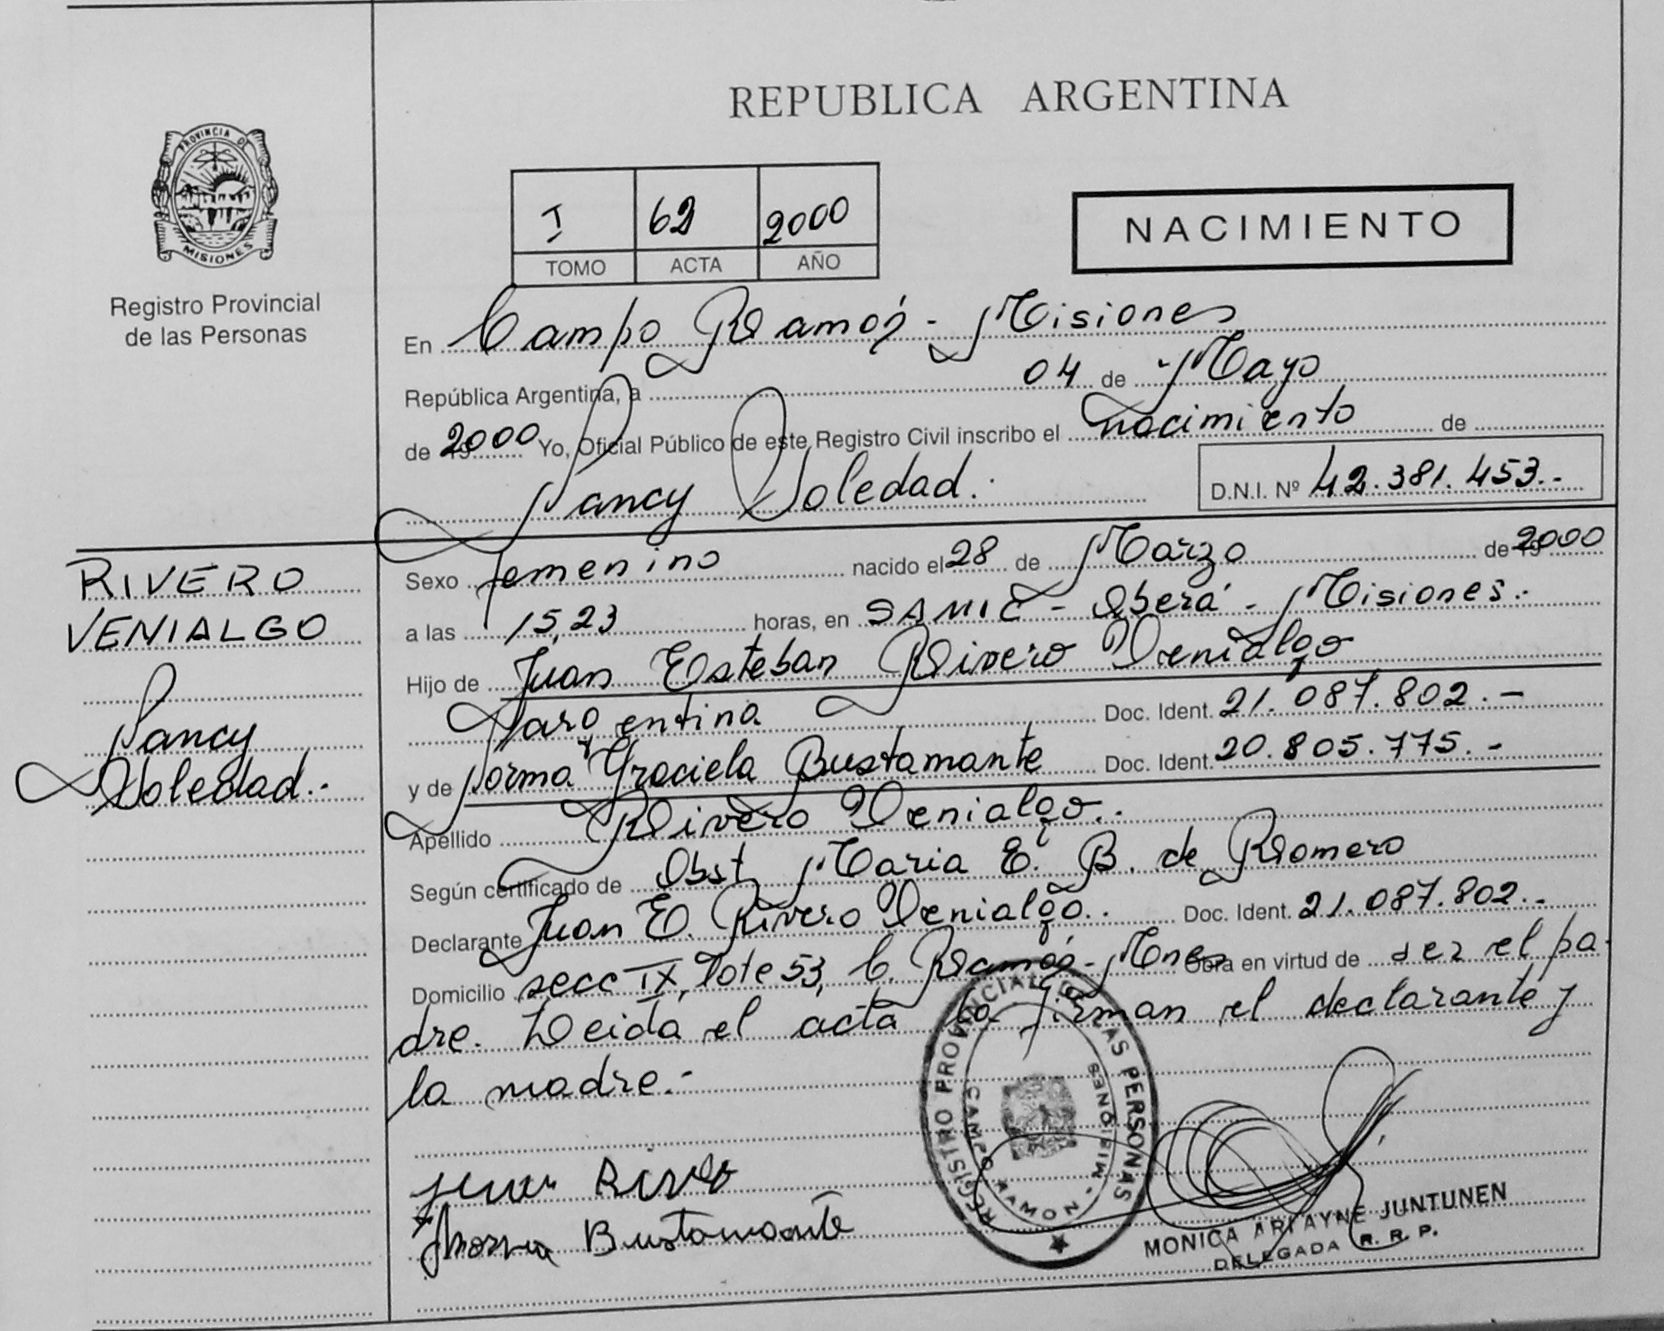 REPUBLICA ARGENTINA
PROVINCIA DE
MISIONES
Registro Provincial
de las Personas
I 62 2000
TOMO ACTA AÑO
NACIMIENTO
En Campo Ramón - Misiones
República Argentina, a 04 de Mayo
de 2000 Yo, Oficial Público de este Registro Civil inscribo el nacimiento de
Nancy Soledad.
D.N.I. Nº 42.381.453.-
RIVERO
VENIALGO
Nancy
Soledad.-
Sexo femenino nacido el 28 de Marzo de 2000
a las 15,23 horas, en SAMIC - Oberá - Misiones.-
Hijo de Juan Esteban Rivero Venialgo
Argentina Doc. Ident. 21.087.802.-
y de Norma Graciela Bustamante Doc. Ident. 20.805.775.-
Apellido Rivero Venialgo.-
Según certificado de Obst. Maria E. B. de Romero
Declarante Juan E. Rivero Venialgo.- Doc. Ident. 21.087.802.-
Domicilio secc IX, Lote 53, C. Ramón - Mnes Obra en virtud de ser el pa-
dre. Leida el acta la firman el declarante y
la madre.-
Juan Rivero
Norma Bustamante
REGISTRO PROVINCIAL DE LAS PERSONAS
CAMPO RAMON - MISIONES
MONICA ARLAYNE JUNTUNEN
DELEGADA R. R. P.